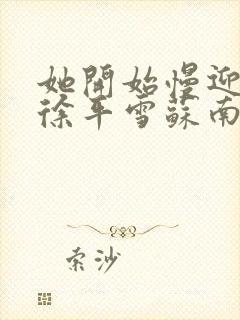 她開始慢迎
徐平雪蘇南
索沙